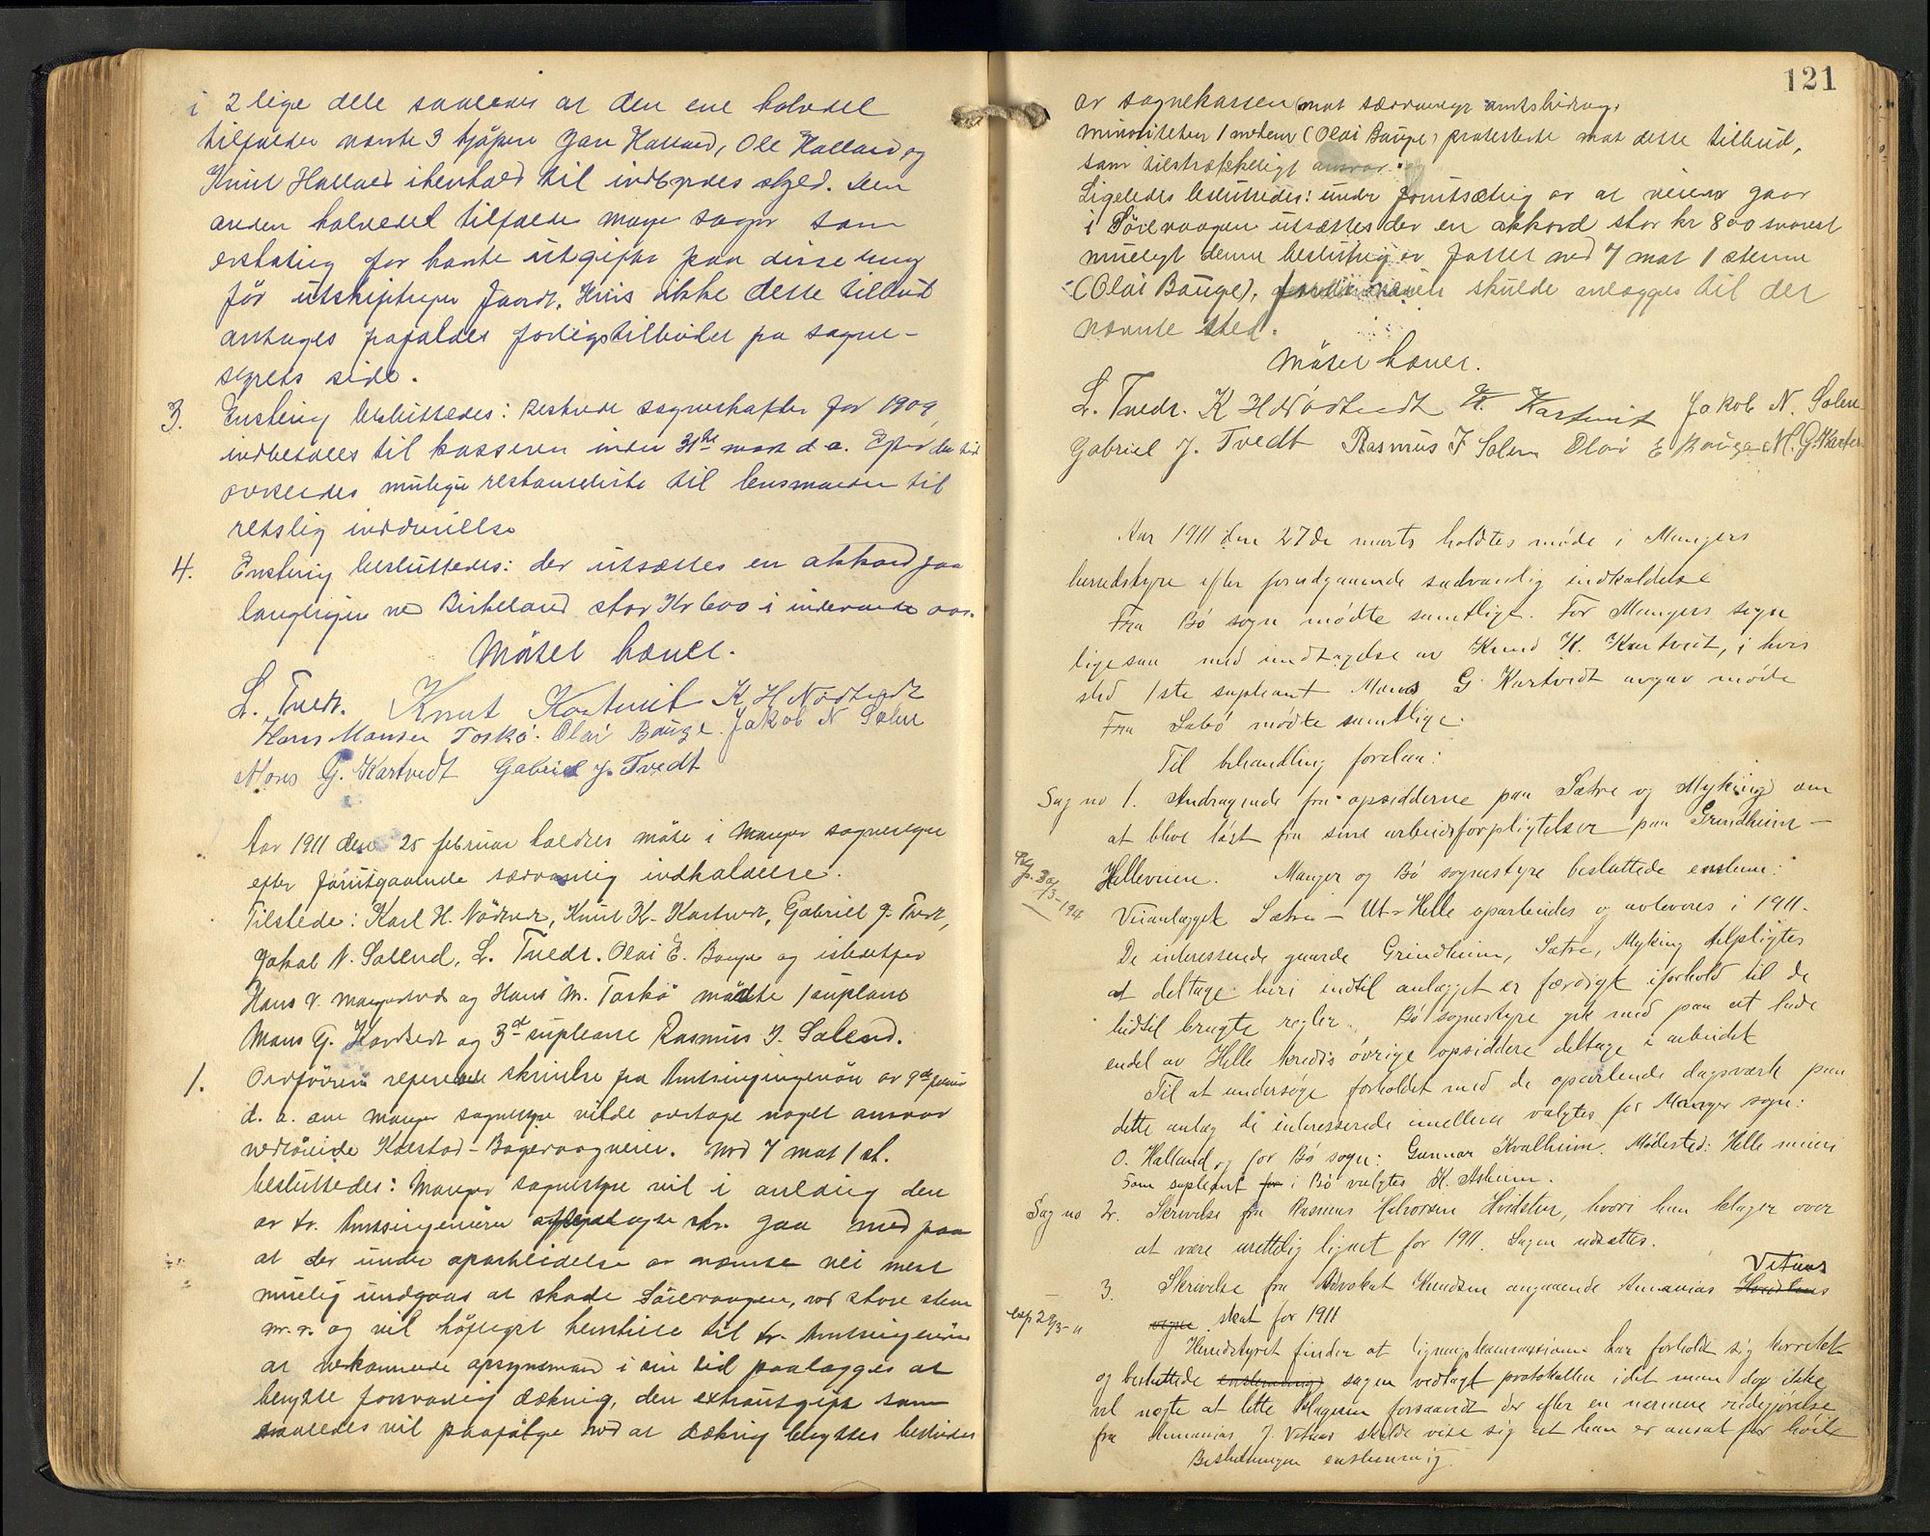 i 2 lige dele saaledes at den ene halvdel
tilfalder nævnte 3 kjøpere Jan Halland, Ole Halland og
Knut Halland i henhold til indbyrdes skyld. Den
anden halvedel tilfalder Manger sogn som
erstating for havte utgifter paa disse ting
før utskiptingen foordt. Hvis ikke dette tilbud
antages frafaldes forligstilbudet fra sogne-
styrets side.
3. Enstemig besluttedes: Restrende sogneskatter for 1909,
indbetales til kasseren inden 31te mars d. a. Efter den tid
oversendes mulige restanseliste til lensmanden til
retslig inddrivelse
4. Enstemig besluttedes: der utsættes en akkord paa
ved Birkeland stor Kr 600 i inderværende aar.
Møtet hævet.
L. Tvedt. Knut Kartveit K H Nødtvedt
Hans Monsen Toskö. Olai Bauge. Jakob N Solen
Mons G. Kartvedt Gabriel J. Tvedt
Aar 1911 den 25 februar holdtes møte i Manger sognestyre
efter forutgaaende sædvanlig indkaldelse.
Tilstede: Karl H. Nödtvedt, Knut K. Kartvedt, Gabriel J. Tvedt,
Jakob N. Solend, L. Tvedt. Olai E. Bauge og istedetfor
Hans V. Mangersnes og Hans M. Toskö mødte 1 supleant
Mons G. Kartvedt og 3de supleant Rasmus J. Solend.
1. Ordføreren refererede skrivelse fra Amtsingeniøren av 9de februar
d. a. om Manger sognestyre vilde overtage noget ansvar
vedrörende Kalstad-Bøgevaagveien. Med 7 mot 1 st.
besluttedes: Manger sognestyre vil i anledning den
av hr. Amtsingeniøren skr. gaa med paa
at der under oparbeidelse av nævnte vei mest
muelig undgaaes at skade Søilevaagen, ved store stene
m. v. og vil höfligst henstille til hr. Amtsingeniøren
at vedkommende opsynsmand i sin tid paalægges at
benytte forsvarlig dækning, den extrautgift som
saaledes vil paafølge ved at dækning benyttes bestrides
121
av sognekassen mot sedvanlige amtsbidrag.
minoriteten 1 medlem (Olai Bauge) protesterte mot dette tilbud,
som tilstrækkeligt ansvar.
Ligeledes besluttedes: under forutsætning av at veien gaar
i Söilevaagen utsættes der en akkord stor kr 800 snarest
mueligt denne beslutning er fattet med 7 mot 1 stemme
(Olai Bauge), fordi veien skulde anlægges til det
nævnte sted.
Møtet hævet.
L. Tvedt. K H Nødtvedt K. Kartveit Jakob N. Solen
Gabriel J. Tvedt Rasmus J Solen Olai E Bauge M. G Kartve
Aar 1911 den 27de marts holdtes møde i Mangers
herredstyre efter forudgaaende sædvanlig indkaldelse
Fra Bö sogn mødte samtlige. For Mangers sogn
ligesaa med undtagelse av Knud K. Kartveit, i hvis
sted 1ste supleant Mons G. Kartvedt avgav møde
Fra Sabö mødte samtlige.
Til behandling forelaa:
Sag no 1. Andragende fra opsidderne paa Sætre og Myking om
at blive löst fra sine arbeidsforpligtelser paa Grindheim-
Helleveien. Manger og Bö sognestyre besluttede enstem:
Veianlægget Sætre - Ut-Helle oparbeides og avleveres i 1911.
De interessende gaarde Grindheim, Sætre, Myking tilpligtes
at deltage heri indtil anlægget er færdigt i forhold til de
hidtil brugte regler. Bö sognestyre gik med paa at lade
endel av Helle kreds övrige opsiddere deltage i arbeidet
Til at undersöge forholdet med de oparbeidende dagsværk paa
dette anlæg de interesserede imellem valgtes for Manger sogn:
O. Halland og for Bö sogn: Gunnar Kvalheim. Mødested: Helle meieri
Som supleant for i Bö valgtes H. Askeim.
Sag no 2. Skrivelse fra Rasmus Halvorsen Hvidsten, hvori han klager over
at være urettelig lignet for 1911. Sagen udsættes.
3. Skrivelse fra Advokat Knudsen angaaende Ananias Vetaas
exp 29/3-11
skat for 1911
Herredstyret finder at ligningskommissionen har forholdt sig korrekt
og besluttede enstemmig sagen vedlagt protokollen idet man dog ikke
vil nægte at lette klageren forsaavidt der efter en nærmere redegjörelse
fra Ananias J. Vetaas skulde vise sig at han er ansat for høit
Beslutningen enstemmig.